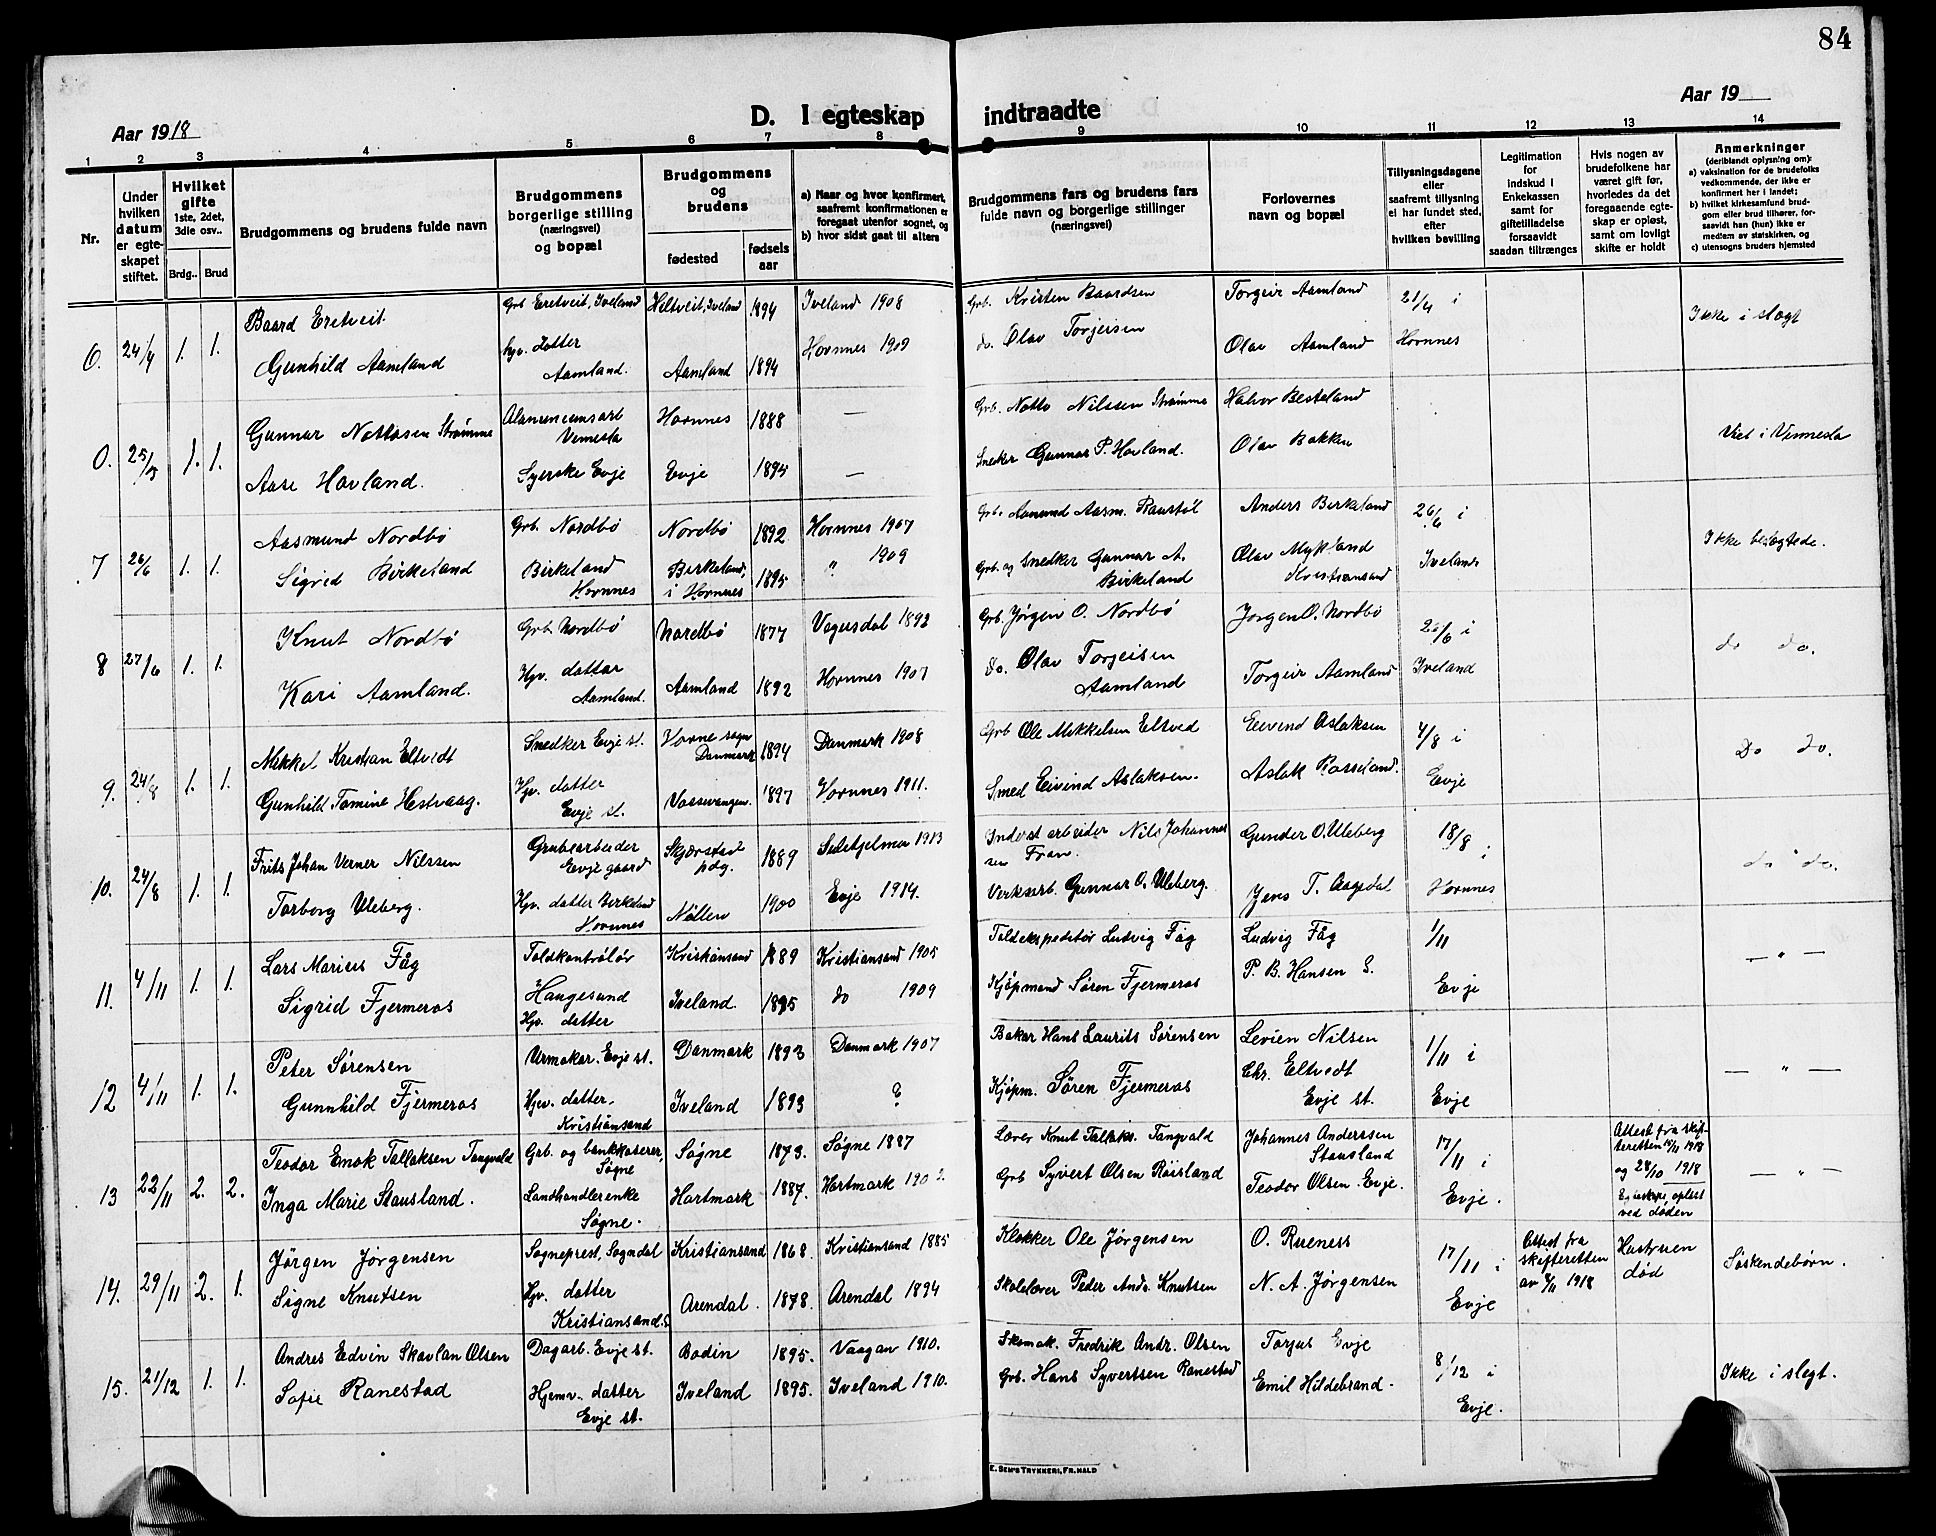 84
Aar 1918
D. I egteskap indtraadte
Aar 19
1 2 3 4 5 6 7 8 9 10 11 12 13 14
Nr.
Under hvilken datum er egteskapet stiftet.
Hvilket gifte 1ste, 2det, 3die osv..
Brdg.. Brud
Brudgommens og brudens fulde navn
Brudgommens borgerlige stilling (næringsvei) og bopæl
Brudgommens og brudens
fødested
fødselsaar
a) Naar og hvor konfirmert, saafremt konfirmationen er foregaat utenfor sognet, og
b) hvor sidst gaat til alters
Brudgommens fars og brudens fars fulde navn og borgerlige stillinger (næringsvei)
Forlovernes navn og bopæl
Tillysningsdagene eller saafremt tillysning ei har fundet sted, efter hvilken bevilling
Legitimation for indskud i Enkekassen samt for giftetilladelse forsaavidt saadan tiltrænges
Hvis nogen av brudefolkene har været gift før, hvorledes da det foregaaende egteskap er opløst, samt om lovligt skifte er holdt
Anmerkninger (deriblandt oplysning om):
a) vaksination for de brudefolks vedkommende, der ikke er konfirmert her i landet;
b) hvilket kirkesamfund brudgom eller brud tilhører, forsaavidt han (hun) ikke er medlem av statskirken, og
c) utensogns bruders hjemsted
6. 24/4 1. 1. Baard Eretveit Grb Eretveit, Iveland Heltveit, Iveland 1894 Iveland 1908 Grb. Kristen Baardsen Torgeir Aamland 21/4 i Ikke i slægt
Gunhild Aamland hjv. datter Aamland. Aamland 1894 Hornnes 1909 do. Olav Torjeisen Olav Aamland Hornnes
0. 25/5 1. 1. Gunnar Nottosen Strømme Vennesla Hornnes 1888 — Grb. Notto Nilssen Strømme Halvor Besteland Viet i Vennesla
Aase Hovland. Syerske Evje Evje 1895 — Snekker Gunnar P. Hovland. Olav Bakken
7 26/6 1. 1. Aasmund Nordbø Grb. Nordbø Nordbø 1892 Hornnes 1907 Grb. Aanund Aasm. Raustøl Anders Birkeland 26/6 i Ikke beslægtede.
Sigrid Birkeland Birkeland Hornnes Birkeland, i Hornnes 1895 " 1909 Grb. og Snedker Gunnar A. Birkeland Olav Mykland Kristiansand Iveland
8 27/6 1. 1. Knut Nordbø Grb. Nordbø Nordbø 1877 Vegusdal 1892 Grb. Jørgen O. Nordbø Jørgen O. Nordbø 26/6 i do do.
Kari Aamland. Hjv. datter Aamland. Aamland 1892 Hornnes 1907 do. Olav Torjeisen Aamland Torgeir Aamland Iveland
9. 24/8 1. 1. Mikkel Kristian Eltvedt Snedker Evje st. Vorne sogn Danmark 1894 Danmark 1908 Grb Ole Mikkelsen Eltved Eivind Aslaksen 4/8 i Do do.
Gunhild Tomine Hestvaag. Hjv. datter Evje st. Vossevangen. 1897 Hornnes 1911. Smed Eivind Aslaksen. Aslak Rosseland. Evje
10. 24/8 1. 1. Frits Johan Verner Nilssen Grubearbeider Evje gaard Skjærstad pdg. 1889 Sulitjelma 1913 Inderst arbeider Nils Johannessen Gunder O. Uleberg 18/8 i do do.
Torborg Uleberg. Hjv. datter Birkeland Hornnes 1900 Evje 1914. Verksarb. Gunnar O. Uleberg. Jens T. Aagedal Hornnes
11. 4/11 1. 1. Lars Marius Fåg Toldkontrolør Kristiansand 1889 Kristiansand 1905 Toldekspeditør Ludvig Fåg Ludvig Fåg 1/11 — " —
Sigrid Fjermeros Haugesund Hjv. datter Iveland 1895 do 1909 Kjøpmand Søren Fjermeros P. B. Hansen Evje
12 4/11 1. 1. Peter Sørensen Urmaker. Evje st. Danmark 1893 Danmark 1907 Baker Hans Laurits Sørensen Levien Nilsen 1/11 i — " —
Gunnhild Fjermeros Hjv. datter. Kristiansand Iveland 1893 ? Kjøpm. Søren Fjermeros Chr. Eltvedt Evje st. Evje
13 22/11 2. 2. Teodor Enok Tallaksen Tangvald Grb. og bankkaserer, Søgne Søgne 1873. Søgne 1887 Lærer Knut Tallaks. Tangvald Johannes Anderssen Stausland 17/11 i Attest fra skifteretten 15/11 1918 og 28/10 1918 — " —
Inga Marie Stausland. Landhandlerenke Søgne. Hartmark 1887. Hartmark 1902. Grb Syvert Olsen Røisland Teodor Olsen. Evje. Evje. Egteskap. opløst ved døden
14. 29/11 2. 1. Jørgen Jørgensen Sogneprest, Sogndal Kristiansand 1868 Kristiansand 1885 Klokker Ole Jørgensen O. Rueness 17/11 i Attest fra skifteretten av 7/11 1918 Hustruen død Søskendebørn.
Signe Knutsen Hjv. datter Kristiansand S Arendal. 1878. Arendal 1894 Skolelærer Peder Andr. Knutsen N. A. Jørgensen Evje
15. 21/12 1. 1. Andres Edvin Skavlan Olsen Dagarb. Evje st. Bodin 1895. Vaagan 1910. Skomak. Fredrik Andr. Olsen Torjus Evje 8/12 i Ikke i slegt.
Sofie Ranestad Hjemv. datter Evje st. Iveland 1895. Iveland 1910. Grb. Hans Syvertsen Ranestad Emil Hildebrand. Evje.
E. SEM'S TRYKKERI, FR.HALD